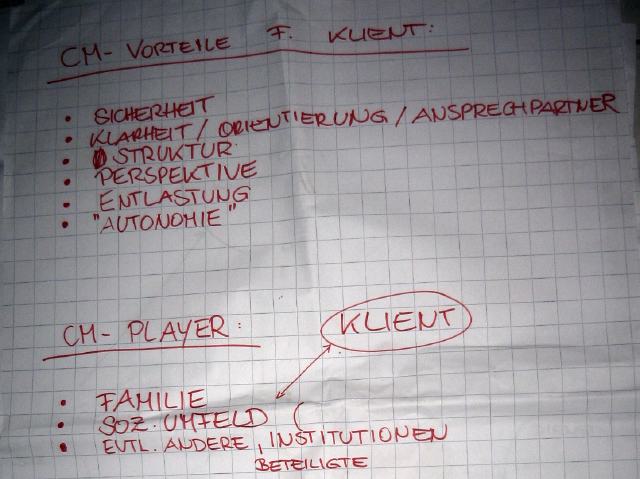 CM- VORTEILE F. KLIENT:
• SICHERHEIT
• KLARHEIT / ORIENTIERUNG / ANSPRECHPARTNER
• STRUKTUR
• PERSPEKTIVE
• ENTLASTUNG
• "AUTONOMIE"
CM- PLAYER:
KLIENT
• FAMILIE
• SOZ. UMFELD (
• EVTL. ANDERE, INSTITUTIONEN
BETEILIGTE